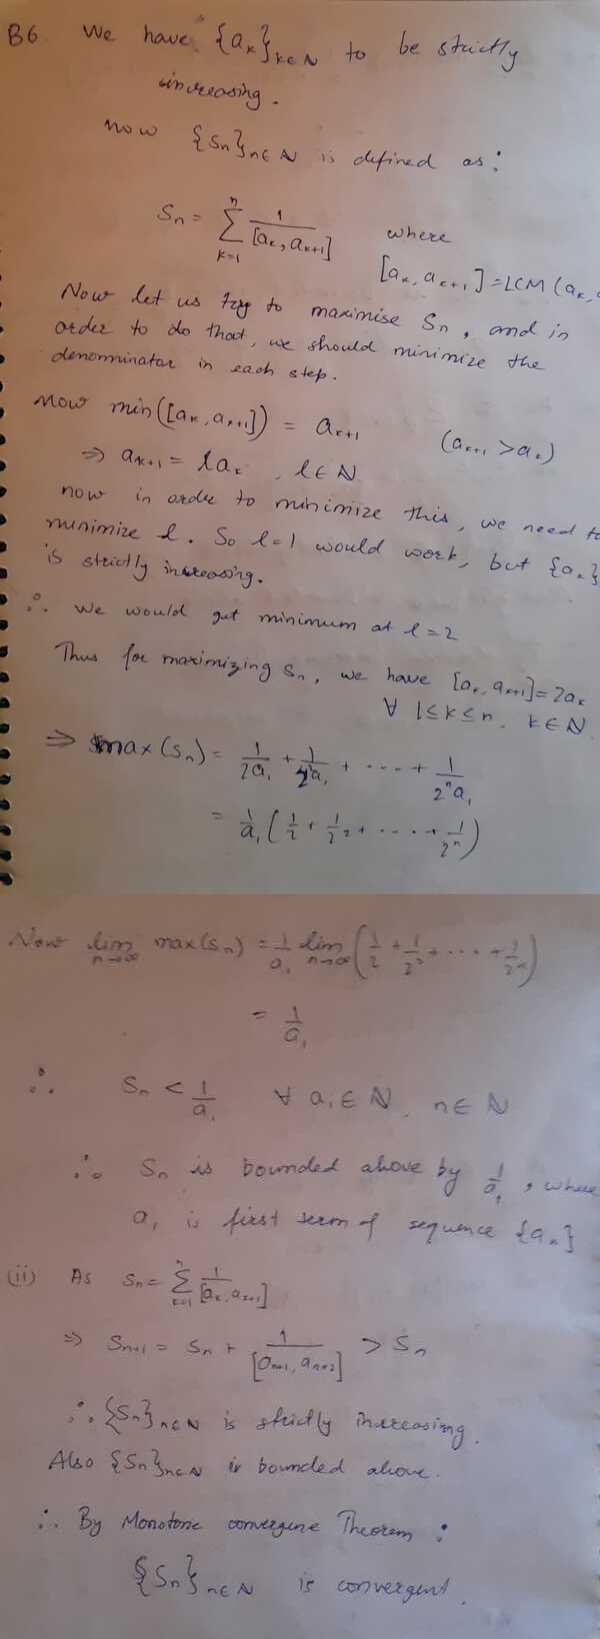 B6 We have {aₖ}ₖ∈ℕ to be strictly
increasing.
now {Sn}n∈ℕ is defined as:
Sn = ∑ₖ₌₁ⁿ 1/[aₖ, aₖ₊₁] where
[aₖ, aₖ₊₁] = LCM (aₖ,
Now let us try to maximise Sn, and in
order to do that, we should minimize the
denominator in each step.
Now min([aₖ, aₖ₊₁]) = aₖ₊₁ (aₖ₊₁ > aₖ)
⇒ aₖ₊₁ = laₖ, l∈ℕ
now in order to minimize this, we need to
minimize l. So l=1 would work, but {aₖ}
is strictly increasing.
∴ We would get minimum at l=2
Thus for maximizing Sn, we have [aₖ, aₖ₊₁] = 2aₖ
∀ 1≤k≤n, k∈ℕ
⇒ max(Sn) = 1/2a₁ + 1/2²a₁ + .... + 1/2ⁿa₁
= 1/a₁ (1/2 + 1/2² + .... + 1/2ⁿ)
Now lim n→∞ max(Sn) = 1/a₁ lim n→∞ (1/2 + 1/2² + .... + 1/2ⁿ)
= 1/a₁
∴ Sn < 1/a₁ ∀ a₁∈ℕ, n∈ℕ
∴ Sn is bounded above by 1/a₁, where
a₁ is first term of sequence {aₖ}
(ii) As Sn = ∑ₖ₌₁ⁿ 1/[aₖ, aₖ₊₁]
⇒ Sn+1 = Sn + 1/[an+1, an+2] > Sn
∴ {Sn}n∈ℕ is strictly increasing.
Also {Sn}n∈ℕ is bounded above.
∴ By Monotone convergence Theorem:
{Sn}n∈ℕ is convergent.